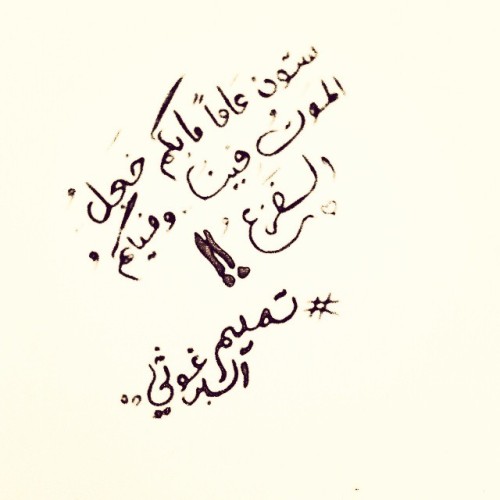 ستون عاماً مابكم خجل
الموت فينا وفيكم
الفزع !!
# تميم
آلبرغوثي ..